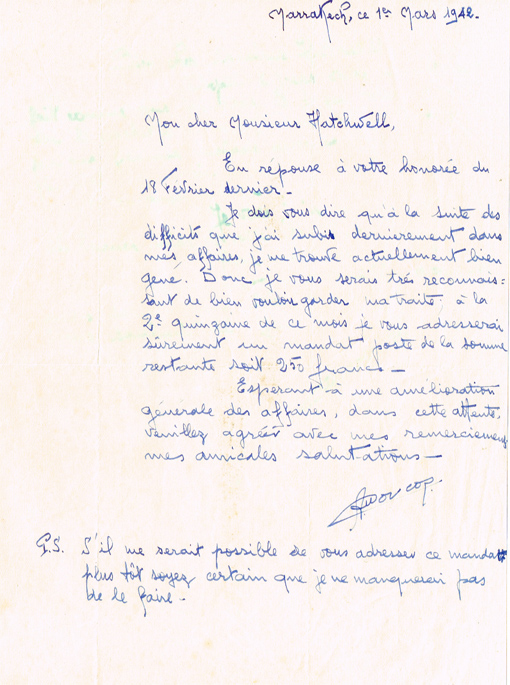 Marrakech, ce 1er Mars 1942.
Mon cher Monsieur Hatchwell,
En réponse à votre honorée du
18 Février dernier-
Je dois vous dire qu'à la suite des
difficités que j'ai subis dernierement dans
mes affaires, je me trouve actuellement bien
gené. Donc je vous serais trés reconnais-
sant de bien vouloir garder ma traite, à la
2e quinzaine de ce mois je vous adresserai
sûrement un mandat poste de la somme
restante soit 250 francs-
Esperant à une amelioration
générale des affaires, dans cette attente,
veuillez agréer avec mes remerciements
mes amicales salutations-
P.S. S'il me serait possible de vous adresser ce mandat
plus tôt soyez certain que je ne manquerai pas
de le faire-